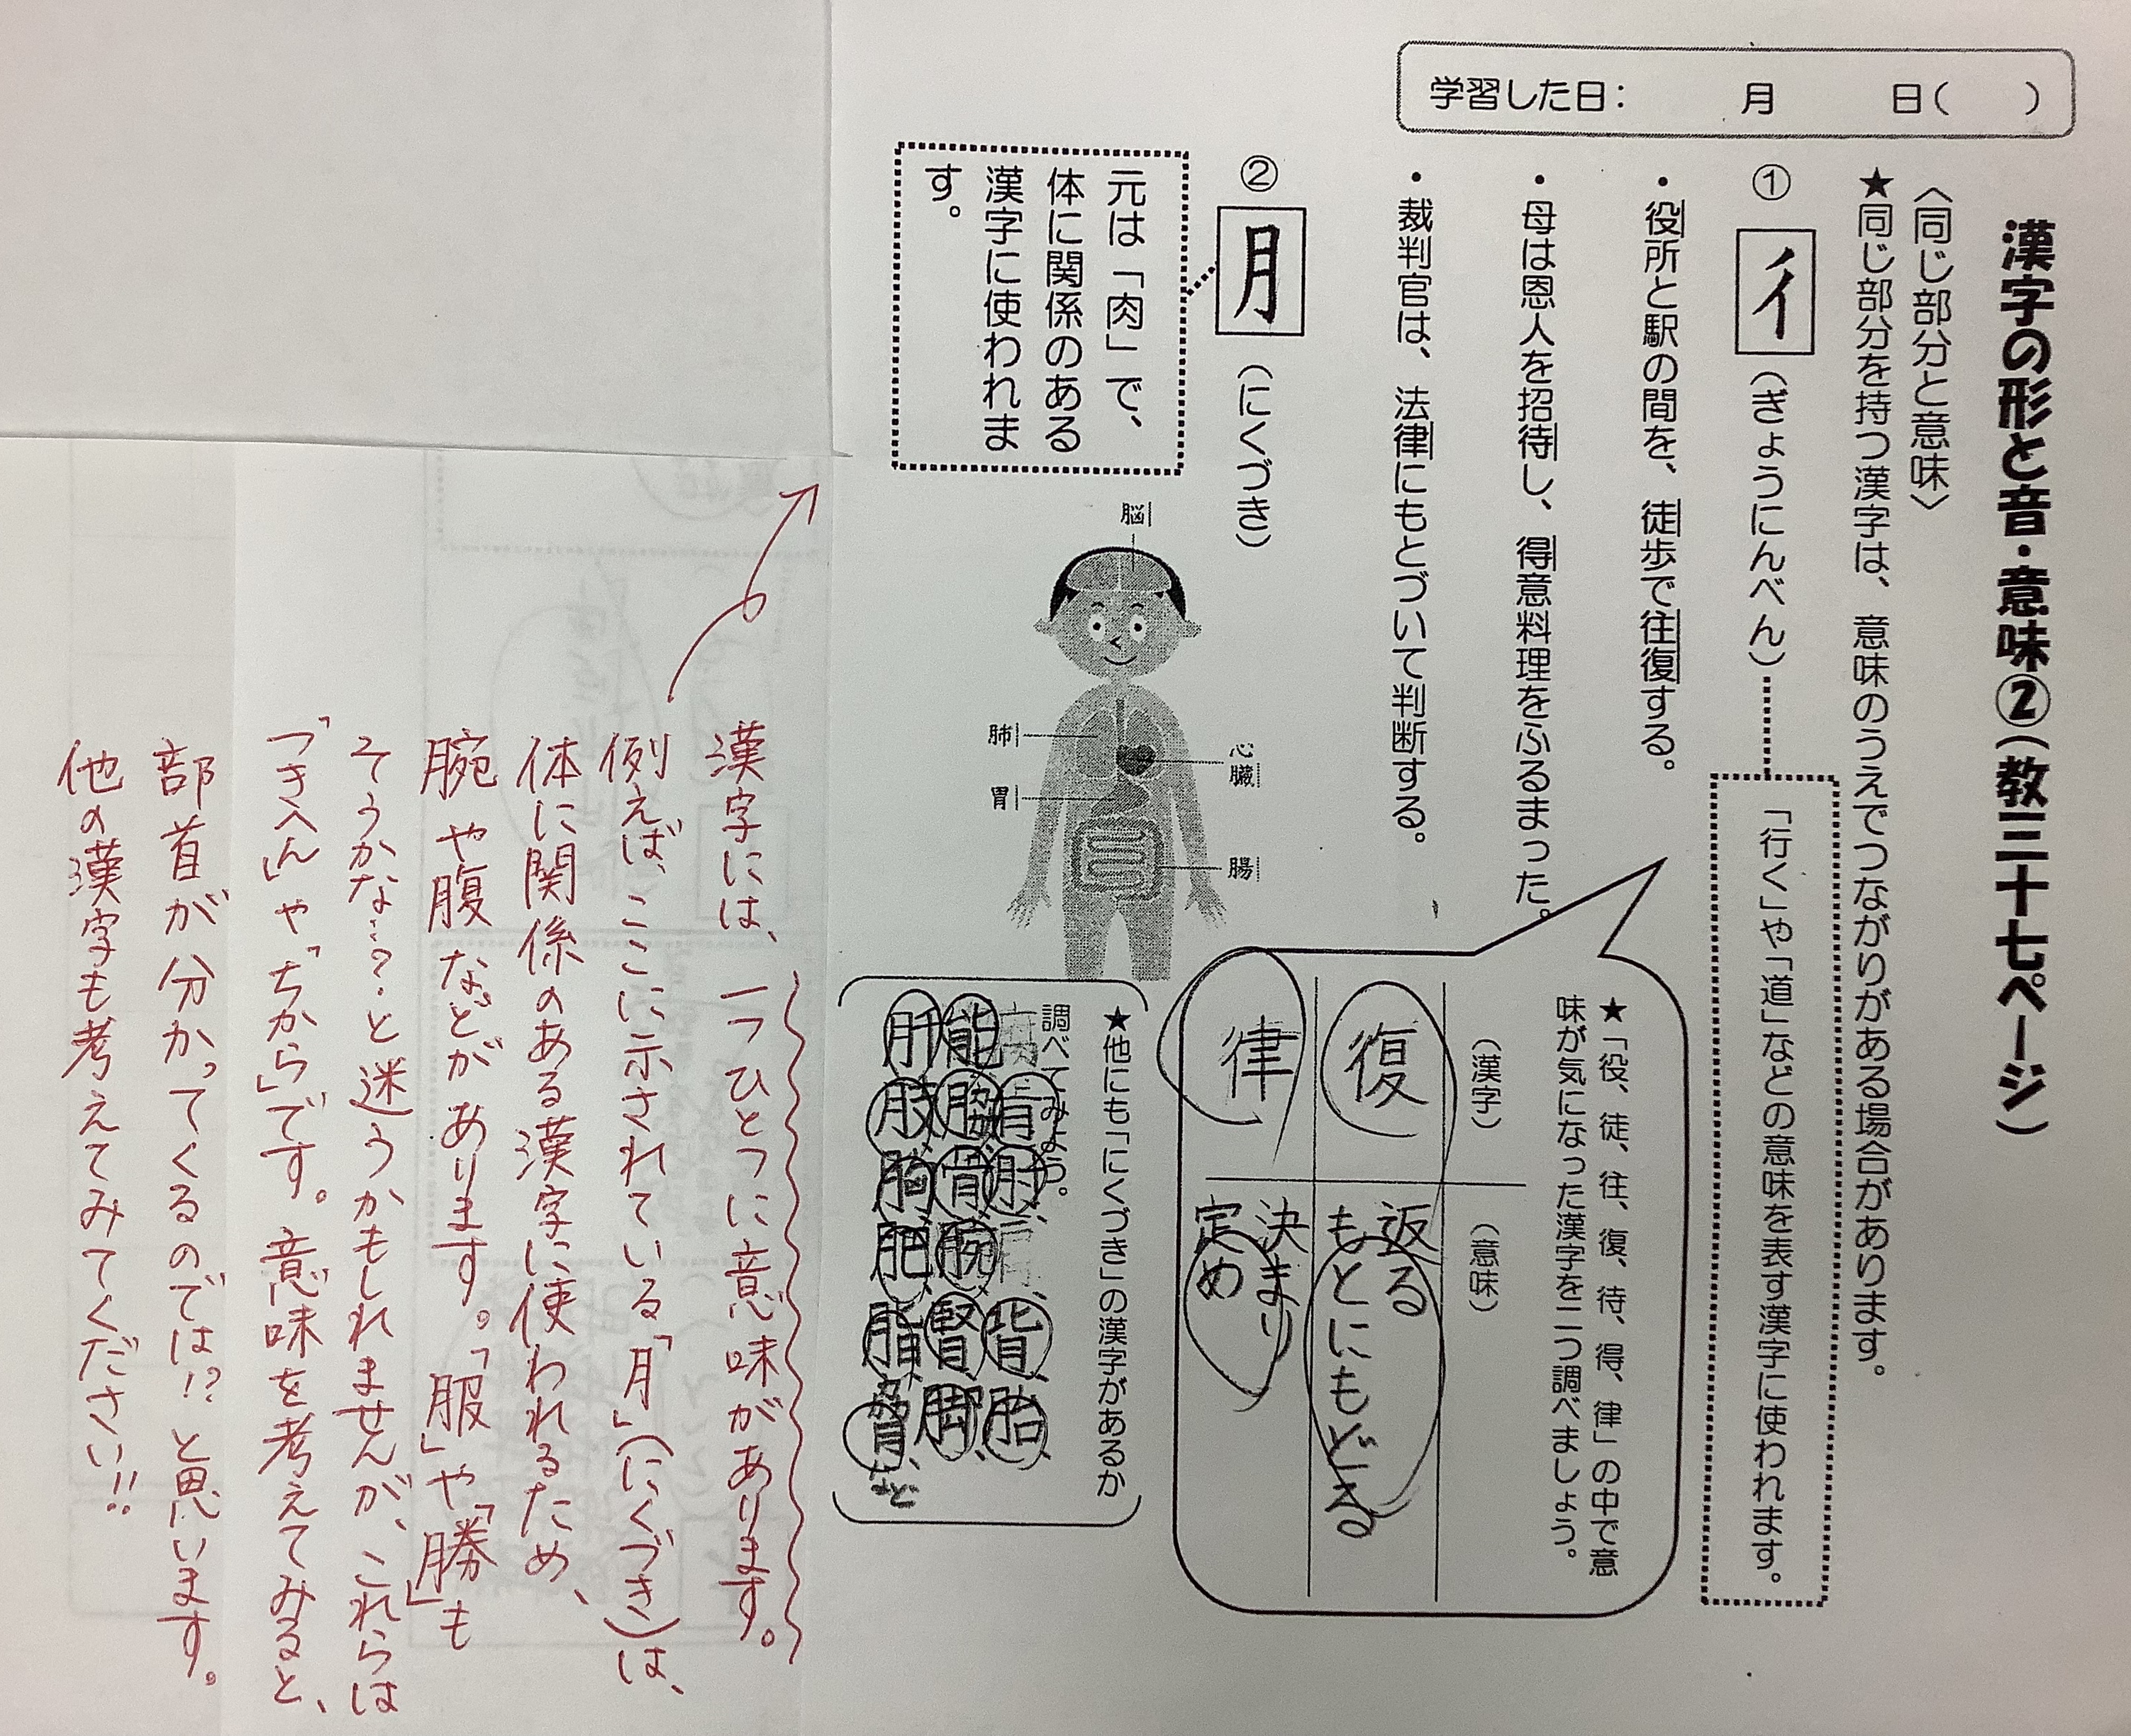 漢字の形と音・意味②(教三十七ページ)
学習した日: 月 日( )
〈同じ部分と意味〉
★同じ部分を持つ漢字は、意味のうえでつながりがある場合があります。
① 彳 (ぎょうにんべん)
「行く」や「道」などの意味を表す漢字に使われます。
・役所と駅の間を、徒歩で往復する。
・母は恩人を招待し、得意料理をふるまった。
・裁判官は、法律にもとづいて判断する。
★「役、徒、往、復、待、得、律」の中で意
味が気になった漢字を二つ調べましょう。
(漢字) (意味)
復 返る
もとにもどる
律 決まり
定め
② 月 (にくづき)
元は「肉」で、
体に関係のある
漢字に使われま
す。
脳
肺
心臓
胃
腸
★他にも「にくづき」の漢字があるか
調べてみよう。
肘、背、胎、
能、脇、背、腕、腎、脚、
肝、肢、胸、肥、脂、など
漢字には、一つひとつに意味があります。
例えば、ここに示されている「月」(にくづき)は、
体に関係のある漢字に使われるため、
腕や腹などがあります。「服」や「勝」も
そうかな…?と迷うかもしれませんが、これらは
「つきへん」や「ちから」です。意味を考えてみると、
部首が分かってくるのでは!?と思います。
他の漢字も考えてみてください!!